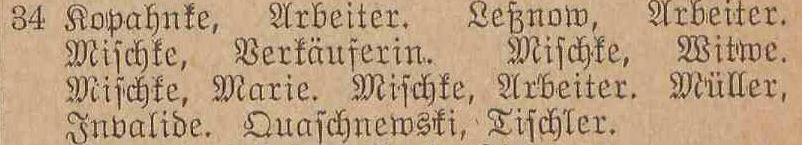 34 Kopahnke, Arbeiter. Leßnow, Arbeiter.
Mischke, Verkäuferin. Mischke, Witwe.
Mischke, Marie. Mischke, Arbeiter. Müller,
Invalide. Quaschnewski, Tischler.